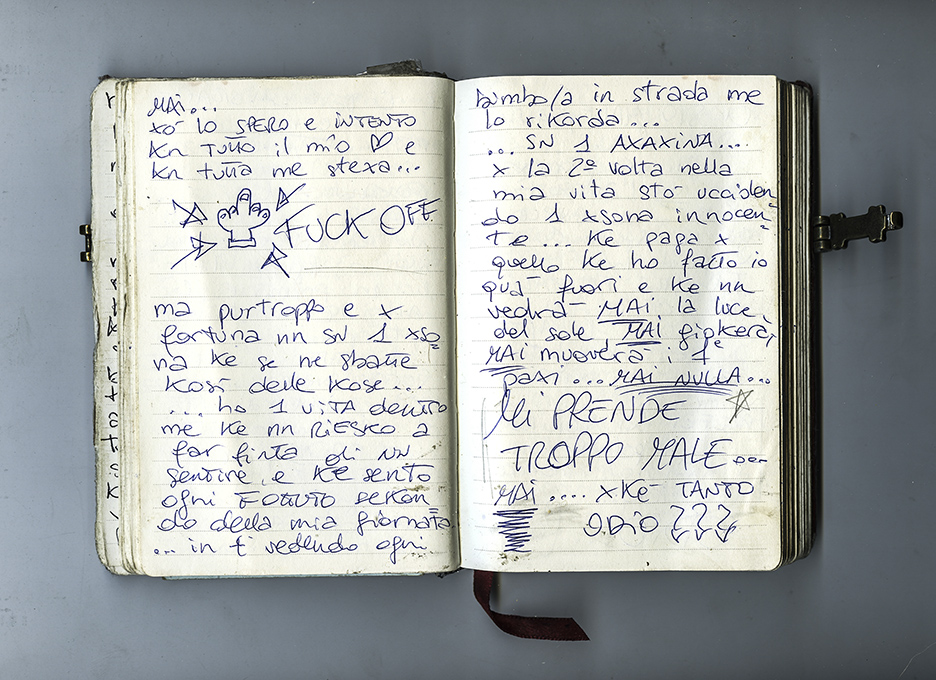 MAI...
xò lo SPERO e INTENTO
Kn TUTTO il mio e
Kn tutta me stexa...
FUCK OFF
ma purtroppo e x
fortuna nn sn 1 xso
na ke se ne sbatte
kosì delle kose...
... ho 1 VITA dentro
me ke nn RIESKO a
far finta di nn
sentire e ke sento
ogni FOTTUTO sekon
do della mia giornata
... in ti vedendo ogni
bimbo/a in strada me
lo rikorda...
... SN 1 AXAXINA....
x la 2ª volta nella
mia vita sto ucciden
do 1 xsona innocen
te... Ke paga x
quello ke ho fatto io
qua fuori e ke nn
vedrà MAI la luce
del sole MAI giokerà,
MAI muoverà i 1ⁱ
paxi... MAI NULLA...
Mi PRENDE
TROPPO MALE
MAI.... xKè TANTO
ODIO ???